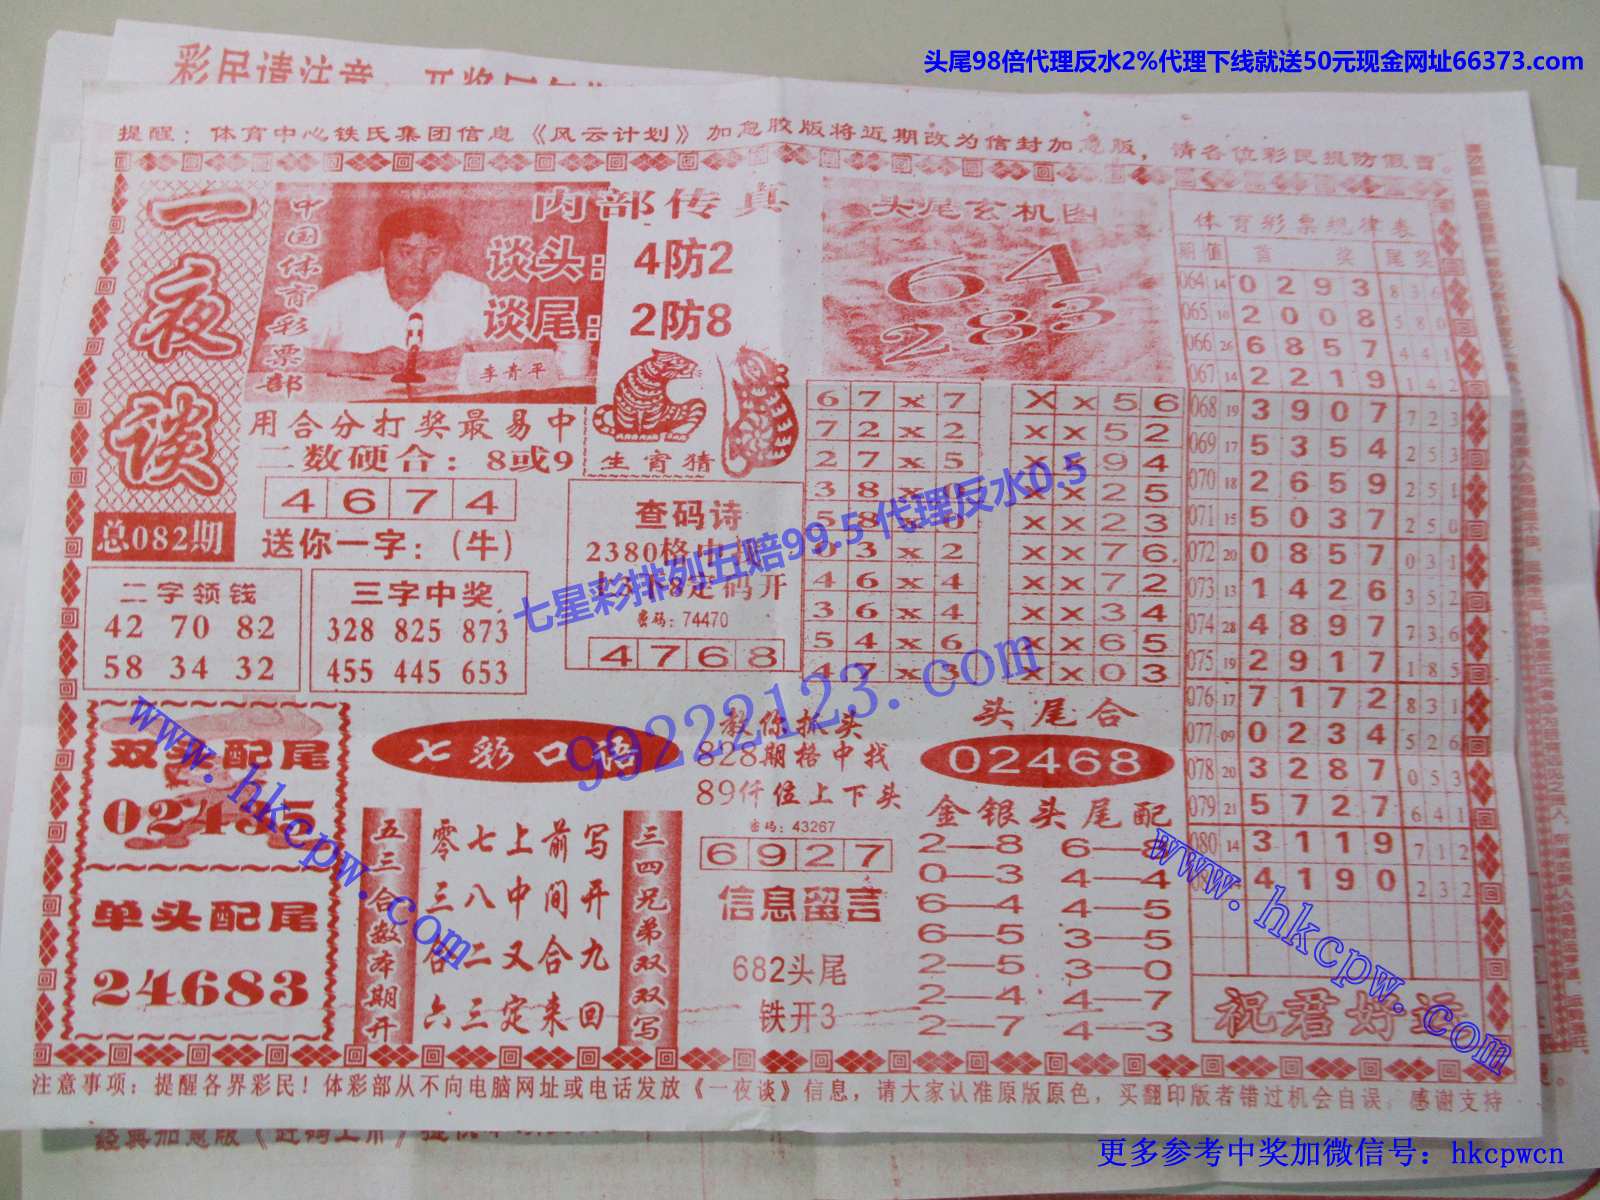 头尾98倍代理反水2%代理下线就送50元现金网址66373.com
彩民请注意
提醒：体育中心铁氏集团信息《风云计划》加急胶版将近期改为信封加急版，请各位彩民提防假冒。
一夜谈
总082期
中国体育彩票部
李青平
内部传真
谈头：4防2
谈尾：2防8
用合分打奖最易中
二数硬合：8或9
4 6 7 4
送你一字：（牛）
生宵猜
头尾玄机图
64
283
二字领钱
42 70 82
58 34 32
三字中奖
328 825 873
455 445 653
查码诗
2380格中
定码开
密码：74470
4 7 6 8
6 7 x 7
7 2 x 2
2 7 x 5
4 6 x 4
3 6 x 4
5 4 x 6
4 7 x 3
X x 5 6
x x 5 2
x x 9 4
x x 2 5
x x 2 3
x x 7 6
x x 7 2
x x 3 4
x x 6 5
x x 0 3
体育彩票规律表
期 值 首 奖 尾 奖
064 14 0 2 9 3 8 3 6
065 10 2 0 0 8 5 8 0
066 26 6 8 5 7 4 4 1
067 14 2 2 1 9 1 4 2
068 19 3 9 0 7 7 2 3
069 17 5 3 5 4 2 5 3
070 18 2 6 5 9 2 5 1
071 15 5 0 3 7 2 5 0
072 20 0 8 5 7 0 3 1
073 13 1 4 2 6 3 5 2
074 28 4 8 9 7 7 3 6
075 19 2 9 1 7 1 8 5
076 17 7 1 7 2 8 3 1
077 09 0 2 3 4 5 2 6
078 20 3 2 8 7 0 5 3
079 21 5 7 2 7 6 4 1
080 14 3 1 1 9 7 1 2
4 1 9 0 2 3 2
祝君好运
双头配尾
单头配尾
24683
七彩口语
五三合数本期开
零七上前写
三八中间开
谷二又合九
六三定来回
三四兄弟双双写
教你抓头
828期格中找
89仟位上下头
密码：43267
6 9 2 7
信息留言
682头尾
铁开3
头尾合
02468
金银头尾配
2—8 6—8
0—3 4—4
6—4 4—5
6—5 3—5
2—5 3—0
2—4 4—7
2—7 4—3
注意事项：提醒各界彩民！体彩部从不向电脑网址或电话发放《一夜谈》信息，请大家认准原版原色，买翻印版者错过机会自误。感谢支持
七星彩排列五赔99.5 代理反水0.5
99222123.com
www.hkcpw.com
www.hkcpw.com
更多参考中奖加微信号：hkcpwcn